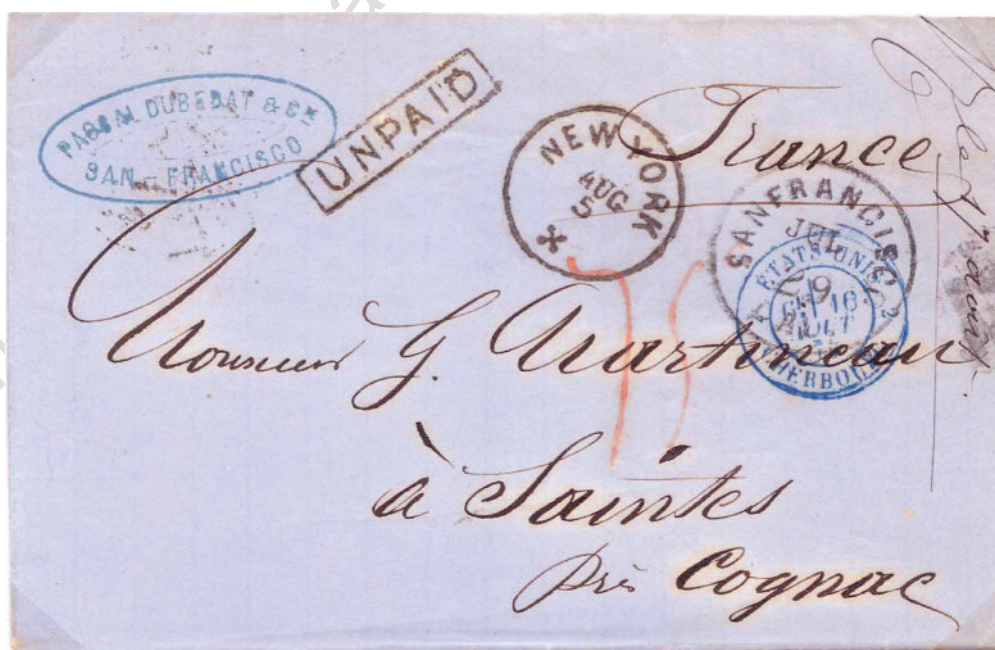 PASCAL DUBEDAT & Cie
SAN-FRANCISCO
UNPAID
NEW YORK
AUG
5
France
SAN FRANCISCO
JUL
9
ETATS-UNIS
16
AOUT
CHERBOURG
Monsieur G. Martineau
à Saintes
près Cognac